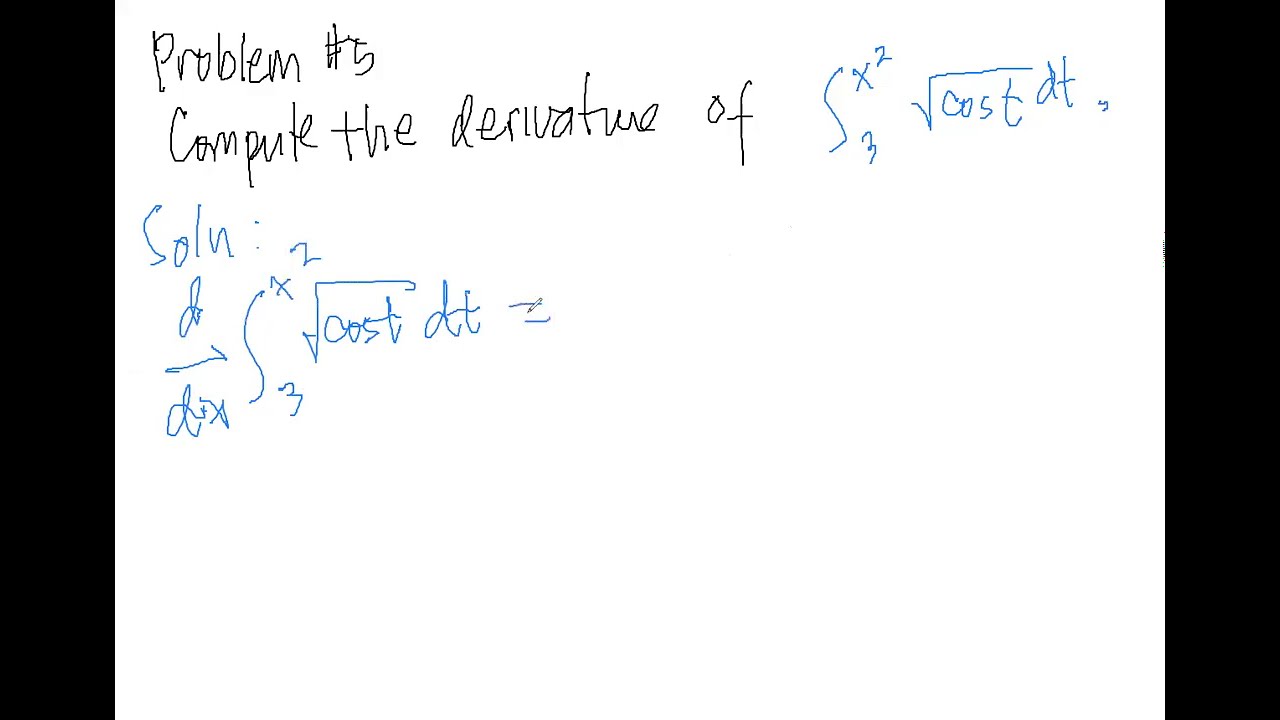 Problem #5
Compute the derivative of ∫₃^x² √cost dt.
Soln:
d/dx ∫₃^x² √cost dt =